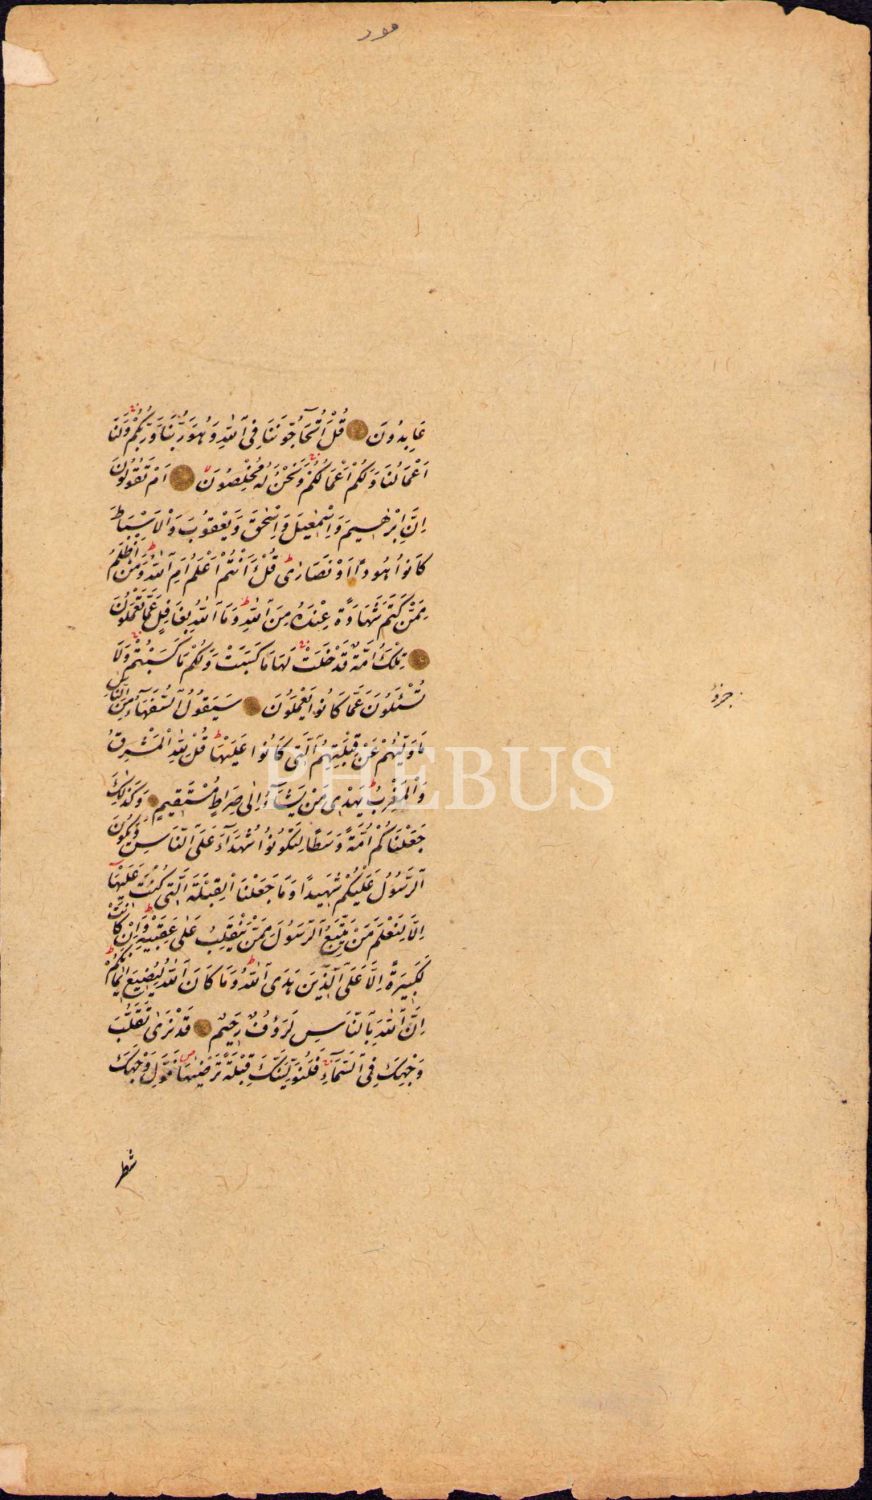 عَابِدُونَ قُلْ اَتُحَآجُّونَنَا فِى اللّٰهِ وَهُوَ رَبُّنَا وَرَبُّكُمْ وَلَنَا
اَعْمَالُنَا وَلَكُمْ اَعْمَالُكُمْ وَنَحْنُ لَهُ مُخْلِصُونَ اَمْ تَقُولُونَ
اِنَّ اِبْرٰهِيمَ وَاِسْمٰعِيلَ وَاِسْحٰقَ وَيَعْقُوبَ وَالْاَسْبَاطَ
كَانُوا هُودًا اَوْ نَصَارٰى قُلْ ءَاَنْتُمْ اَعْلَمُ اَمِ اللّٰهُ وَمَنْ اَظْلَمُ
مِمَّنْ كَتَمَ شَهَادَةً عِنْدَهُ مِنَ اللّٰهِ وَمَا اللّٰهُ بِغَافِلٍ عَمَّا تَعْمَلُونَ
تِلْكَ اُمَّةٌ قَدْ خَلَتْ لَهَا مَا كَسَبَتْ وَلَكُمْ مَا كَسَبْتُمْ وَلَا
تُسْئَلُونَ عَمَّا كَانُوا يَعْمَلُونَ سَيَقُولُ السُّفَهَآءُ مِنَ النَّاسِ
مَا وَلّٰيهُمْ عَنْ قِبْلَتِهِمُ الَّتِى كَانُوا عَلَيْهَا قُلْ لِلّٰهِ الْمَشْرِقُ
وَالْمَغْرِبُ يَهْدِى مَنْ يَشَآءُ اِلٰى صِرَاطٍ مُسْتَقِيمٍ وَكَذٰلِكَ
جَعَلْنَاكُمْ اُمَّةً وَسَطًا لِتَكُونُوا شُهَدَآءَ عَلَى النَّاسِ وَيَكُونَ
الرَّسُولُ عَلَيْكُمْ شَهِيدًا وَمَا جَعَلْنَا الْقِبْلَةَ الَّتِى كُنْتَ عَلَيْهَا
اِلَّا لِنَعْلَمَ مَنْ يَتَّبِعُ الرَّسُولَ مِمَّنْ يَنْقَلِبُ عَلٰى عَقِبَيْهِ وَاِنْ كَانَتْ
لَكَبِيرَةً اِلَّا عَلَى الَّذِينَ هَدَى اللّٰهُ وَمَا كَانَ اللّٰهُ لِيُضِيعَ اِيمَانَكُمْ
اِنَّ اللّٰهَ بِالنَّاسِ لَرَؤُفٌ رَحِيمٌ قَدْ نَرٰى تَقَلُّبَ
وَجْهِكَ فِى السَّمَآءِ فَلَنُوَلِّيَنَّكَ قِبْلَةً تَرْضٰيهَا فَوَلِّ وَجْهَكَ
شطر
PHEBUS